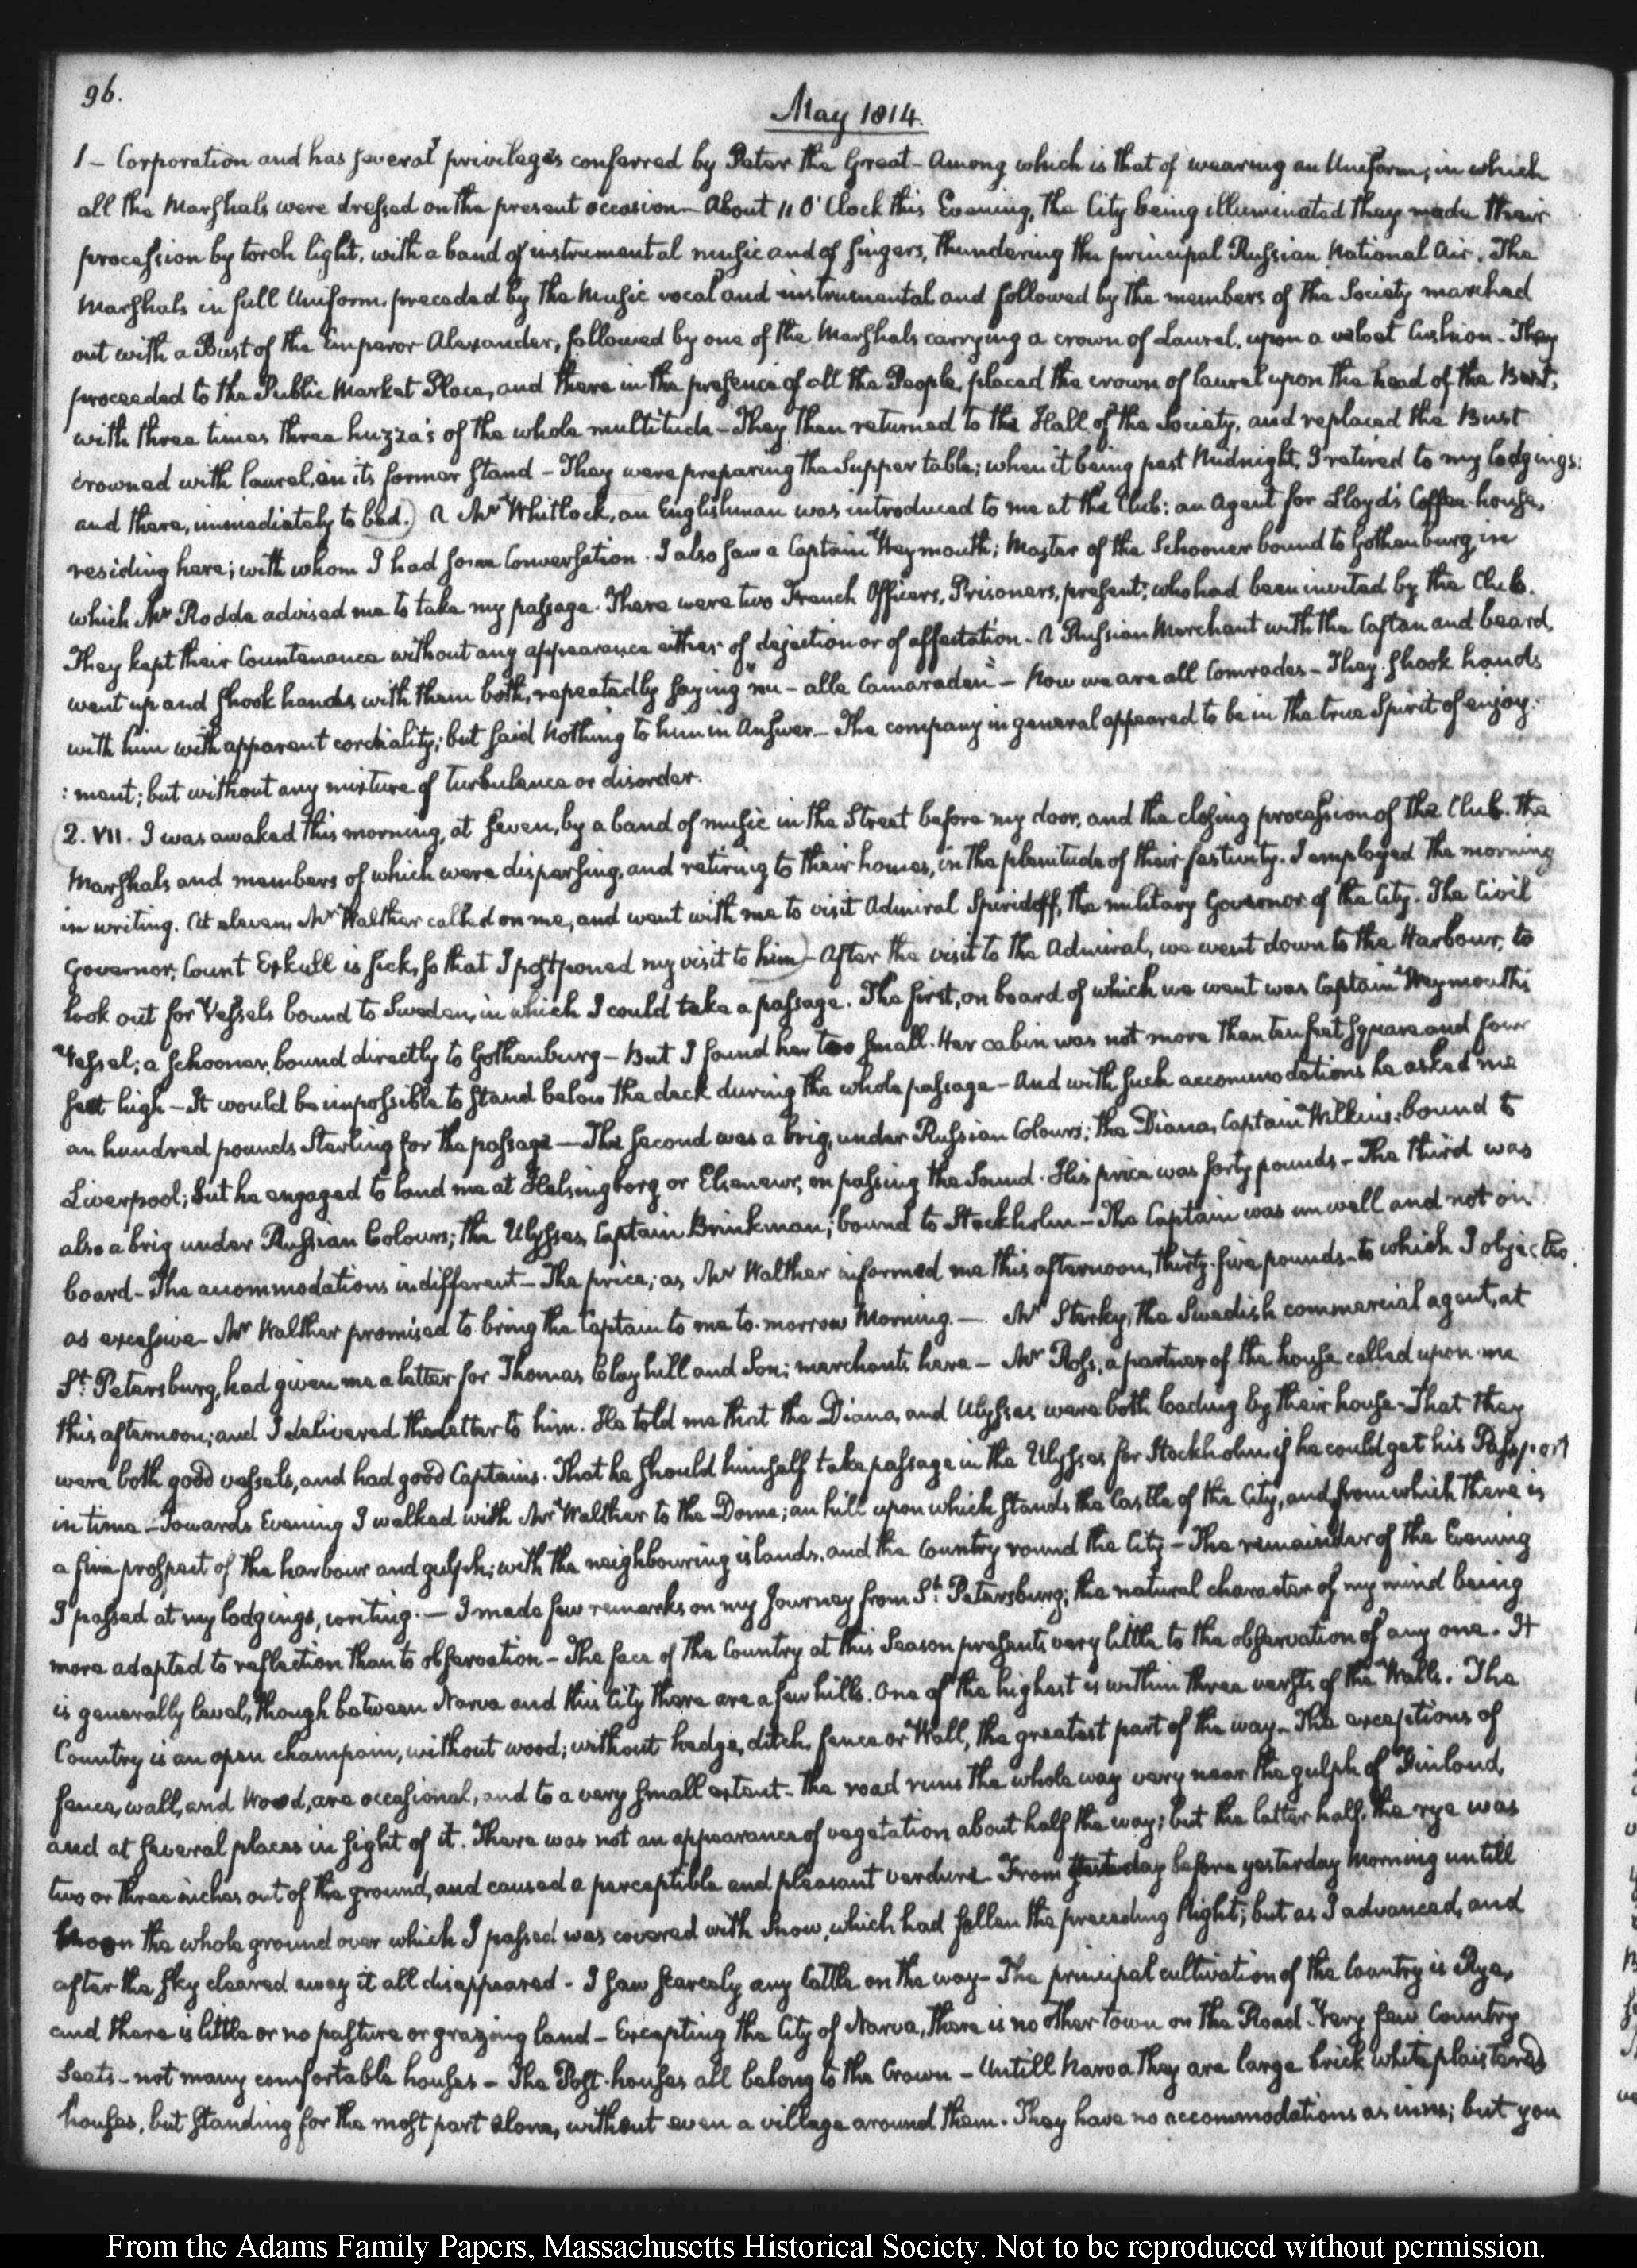 96.
May 1814.
1 - Corporation and has several privileges conferred by Peter the Great - Among which is that of wearing an Uniform; in which
all the Marshals were dressed on the present occasion - About 11 O'Clock this Evening, the City being illuminated they made their
procession by torch light, with a band of instrumental music and of singers, thundering the principal Russian National Air. The
Marshals in full Uniform, preceded by the Music vocal and instrumental and followed by the members of the Society marched
out with a Bust of the Emperor Alexander, followed by one of the Marshals carrying a crown of Laurel, upon a velvet Cushion - They
proceeded to the Public Market Place, and there in the presence of all the People, placed the crown of laurel upon the head of the Bust,
with three times three huzza's of the whole multitude - They then returned to the Hall of the Society, and replaced the Bust
crowned with laurel, on its former stand - They were preparing the Supper table; when it being past Midnight, I retired to my lodgings:
and there, immediately to bed.) A Mr Whitlock, an Englishman was introduced to me at the Club: an Agent for Lloyd's Coffee-house,
residing here; with whom I had some Conversation. I also saw a Captain Weymouth; Master of the Schooner bound to Gothenburg in
which Mr Rodde advised me to take my passage. There were two French Officers, Prisoners, present; who had been invited by the Club.
They kept their Countenance without any appearance either of dejection or of affectation - A Russian Merchant with the Caftan and beard,
went up and shook hands with them both, repeatedly saying "nu - alle Camaraden" - Now we are all Comrades - They shook hands
with him with apparent cordiality; but said nothing to him in Answer - The company in general appeared to be in the true Spirit of enjoy:
:ment; but without any mixture of turbulence or disorder.
2. VII. I was awaked this morning, at seven, by a band of music in the Street before my door, and the closing procession of the Club. The
Marshals and members of which were dispersing, and retiring to their homes, in the plenitude of their festivity. I employed the morning
in writing. At eleven, Mr Walther called on me, and went with me to visit Admiral Spiridoff, the military Governor of the City. The Civil
Governor, Count Exkull is sick, so that I postponed my visit to him) - After the visit to the Admiral, we went down to the Harbour, to
look out for Vessels bound to Sweden, in which I could take a passage. The first, on board of which we went was Captain Weymouth's
Vessel; a Schooner, bound directly to Gothenburg - But I found her too small. Her cabin was not more than ten feet square and four
feet high - It would be impossible to stand below the deck during the whole passage - And with such accommodations he asked me
an hundred pounds Sterling for the passage - The second was a brig, under Russian Colours; the Diana, Captain Wilkins: bound to
Liverpool; but he engaged to land me at Helsingborg or Elseneur, on passing the Sound. His price was forty pounds - The third was
also a brig under Russian Colours; the Ulysses, Captain Brinkman; bound to Stockholm - The Captain was unwell and not on
board - The accommodations indifferent - The price; as Mr Walther informed me this afternoon, thirty-five pounds - to which I objected
as excessive - Mr Walther promised to bring the Captain to me to-morrow Morning. - Mr Sterky, the Swedish commercial agent, at
St Petersburg, had given me a letter for Thomas Clayhill and Son; merchants here - Mr Ross, a partner of the house called upon me
this afternoon; and I delivered the letter to him. He told me that the Diana, and Ulysses were both loading by their house - That they
were both good vessels, and had good Captains. That he should himself take passage in the Ulysses for Stockholm if he could get his Passport
in time - Towards Evening I walked with Mr Walther to the Dome; an hill upon which stands the Castle of the City, and from which there is
a fine prospect of the harbour and gulph; with the neighbouring islands, and the Country round the City - The remainder of the Evening
I passed at my lodgings, writing. - I made few remarks on my Journey from St Petersburg; the natural character of my mind being
more adapted to reflection than to observation - The face of the Country at this Season presents very little to the observation of any one. It
is generally level, though between Narva and this City there are a few hills. One of the highest is within three versts of the Walls. The
Country is an open champain, without wood; without hedge, ditch, fence or Wall, the greatest part of the way - The exceptions of
fence, wall, and Wood, are occasional, and to a very small extent - The road runs the whole way very near the gulph of Finland,
and at several places in sight of it. There was not an appearance of vegetation about half the way; but the latter half, the rye was
two or three inches out of the ground, and caused a perceptible and pleasant verdure - From day before yesterday Morning untill
Noon the whole ground over which I passed was covered with Snow, which had fallen the preceding Night; but as I advanced, and
after the sky cleared away it all disappeared - I saw scarcely any Cattle on the way - The principal cultivation of the Country is Rye,
and there is little or no pasture or grazing land - Excepting the City of Narva, there is no other town on the Road. Very few Country
Seats - not many comfortable houses - The Post-houses all belong to the Crown - Untill Narva they are large brick white plaistered
houses, but standing for the most part alone, without even a village around them. They have no accommodations as inns; but you
From the Adams Family Papers, Massachusetts Historical Society. Not to be reproduced without permission.